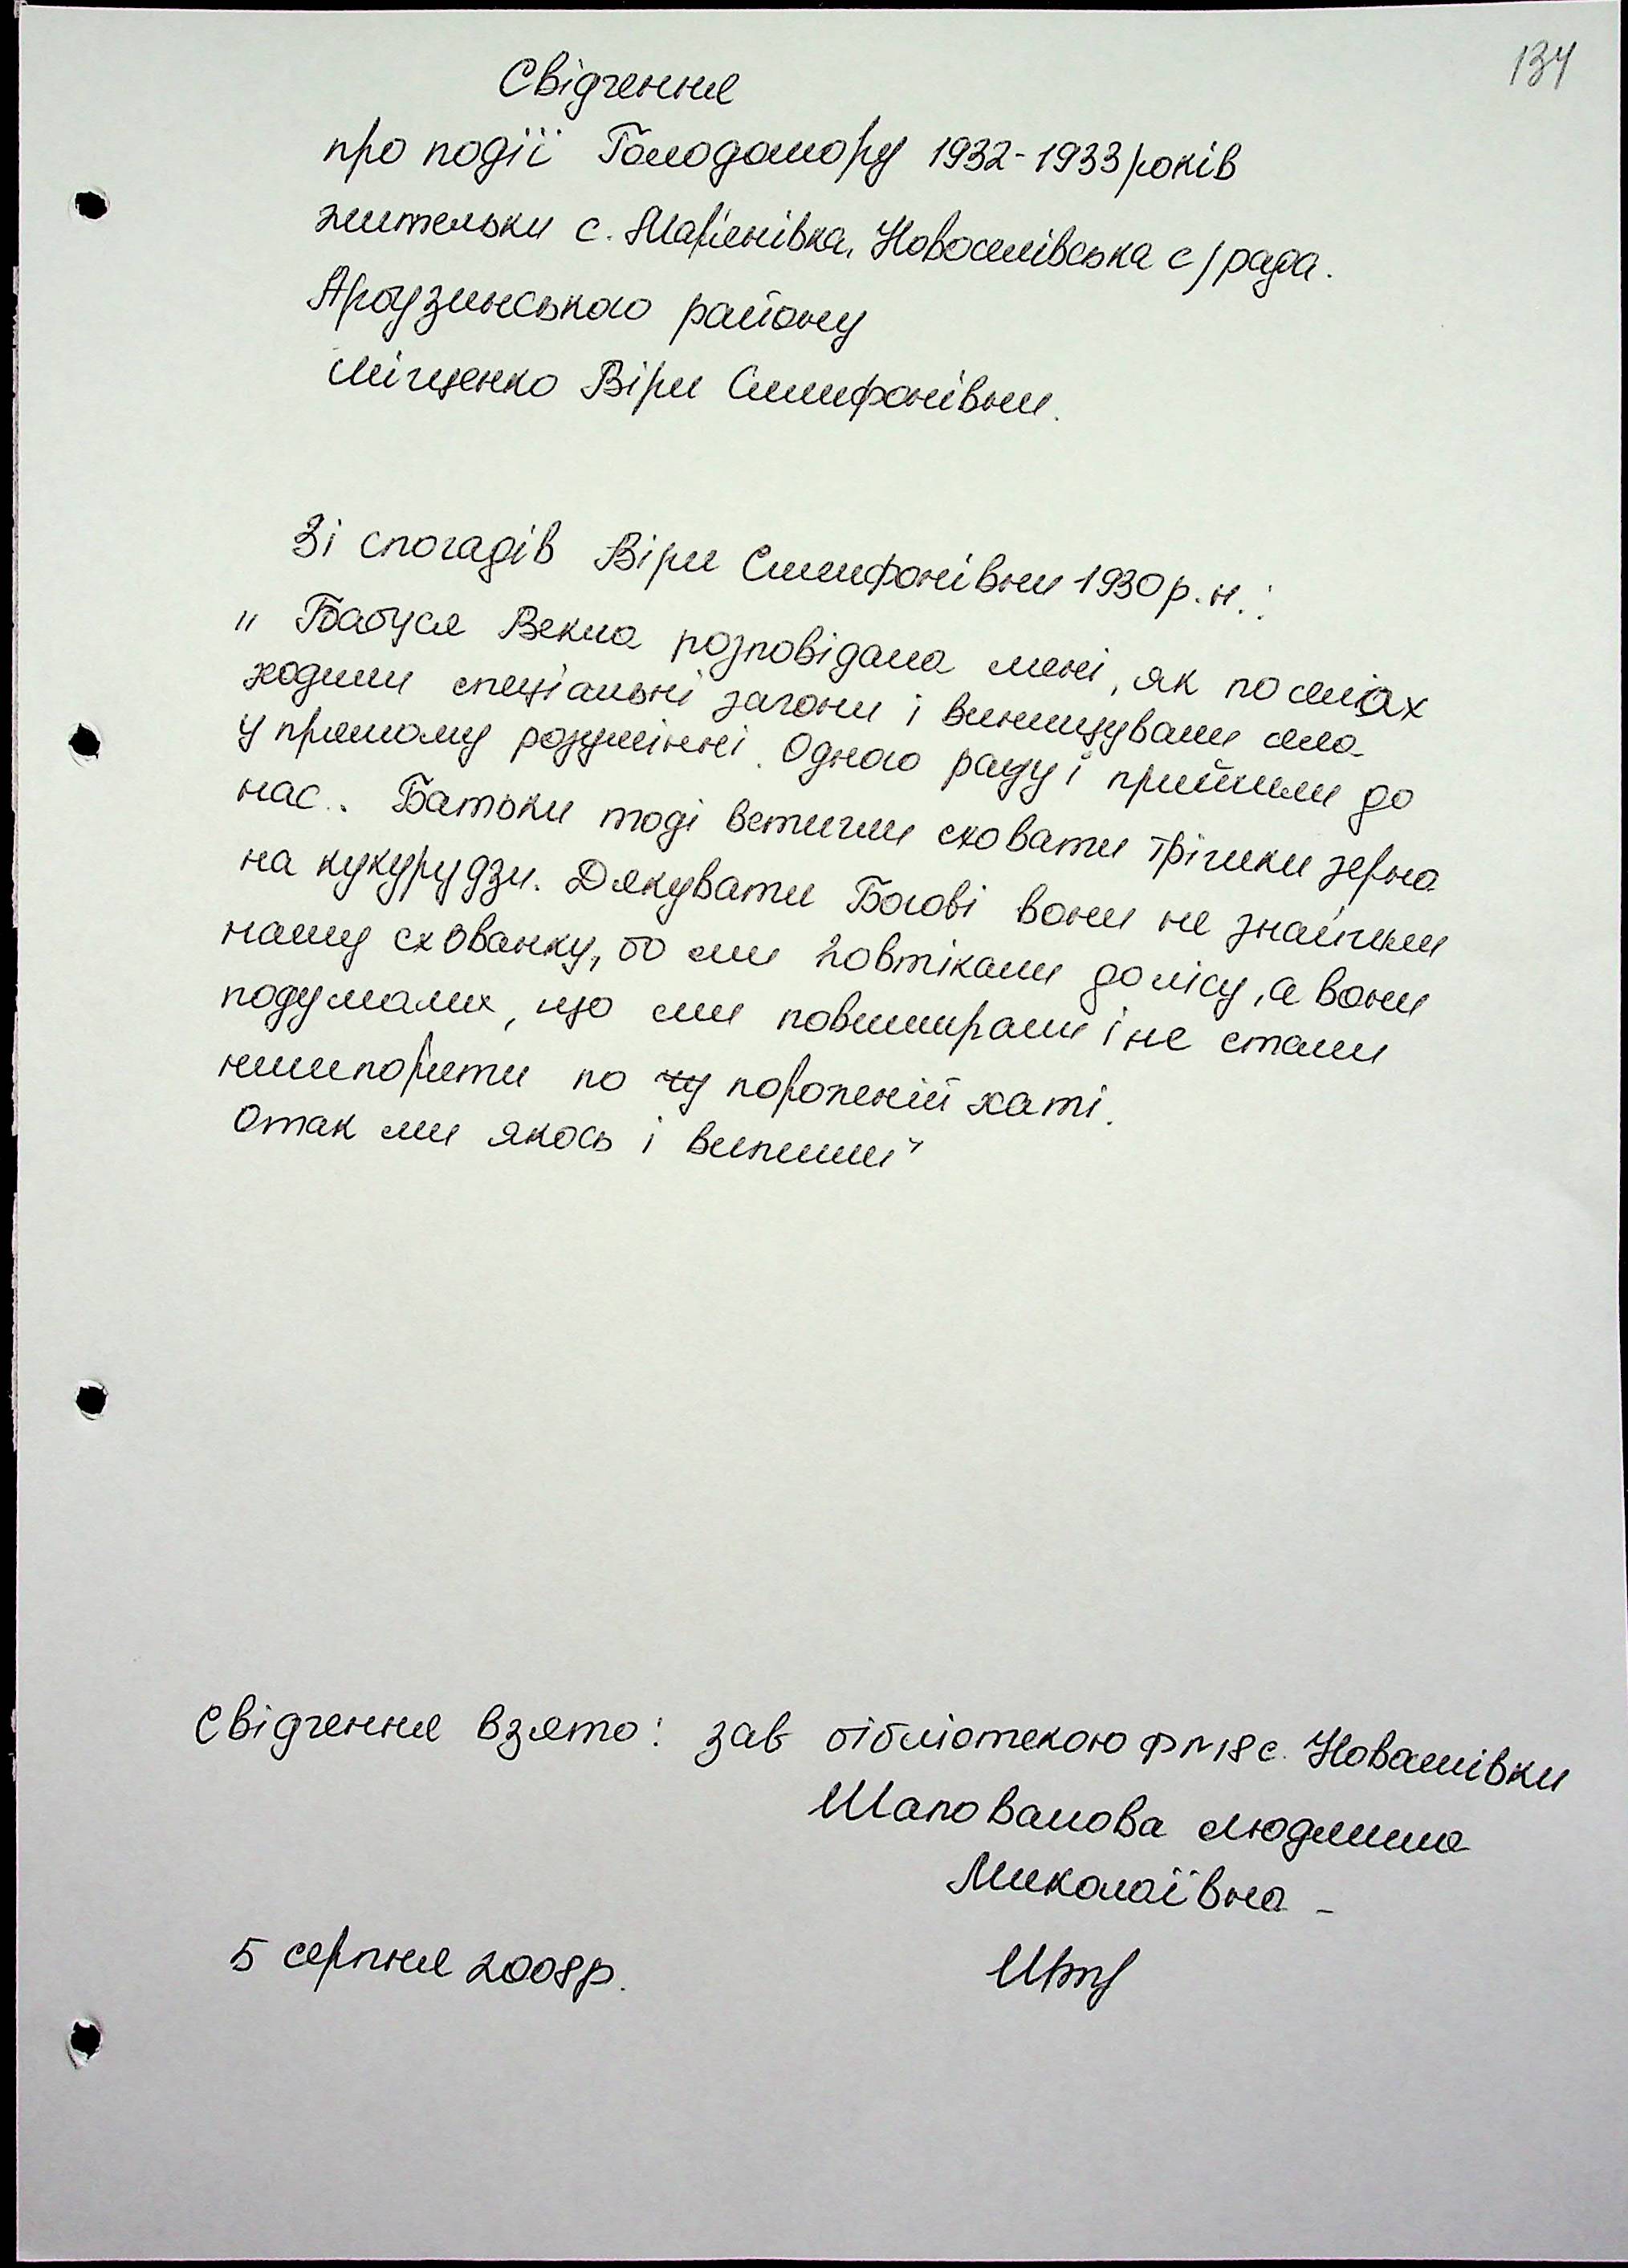 134
Свідчення
про події Голодомору 1932-1933 років
жительки с. Мар'янівка, Новоселівська с/рада.
Арбузинського району
Міщенко Віри Симифонівни.
Зі спогадів Віри Симифонівни 1930 р.н.:
„ Бабуся Векла розповідала мені, як по селах
ходили спеціальні загони і винищували село
у прямому розумінні. Одного разу і прийшли до
нас. Батьки тоді встигли сховати трішки зерна
на кукурудзи. Дякувати Богові вони не знайшли
нашу схованку, бо ми повтікали до лісу, а вони
подумали, що ми повимирали і не стали
нишпорити по порожній хаті.
Отак ми якось і вижили"
Свідчення взято: зав бібліотекою ф №18 с. Новоселівки
Шаповалова Людмила
Миколаївна -
5 серпня 2008р.